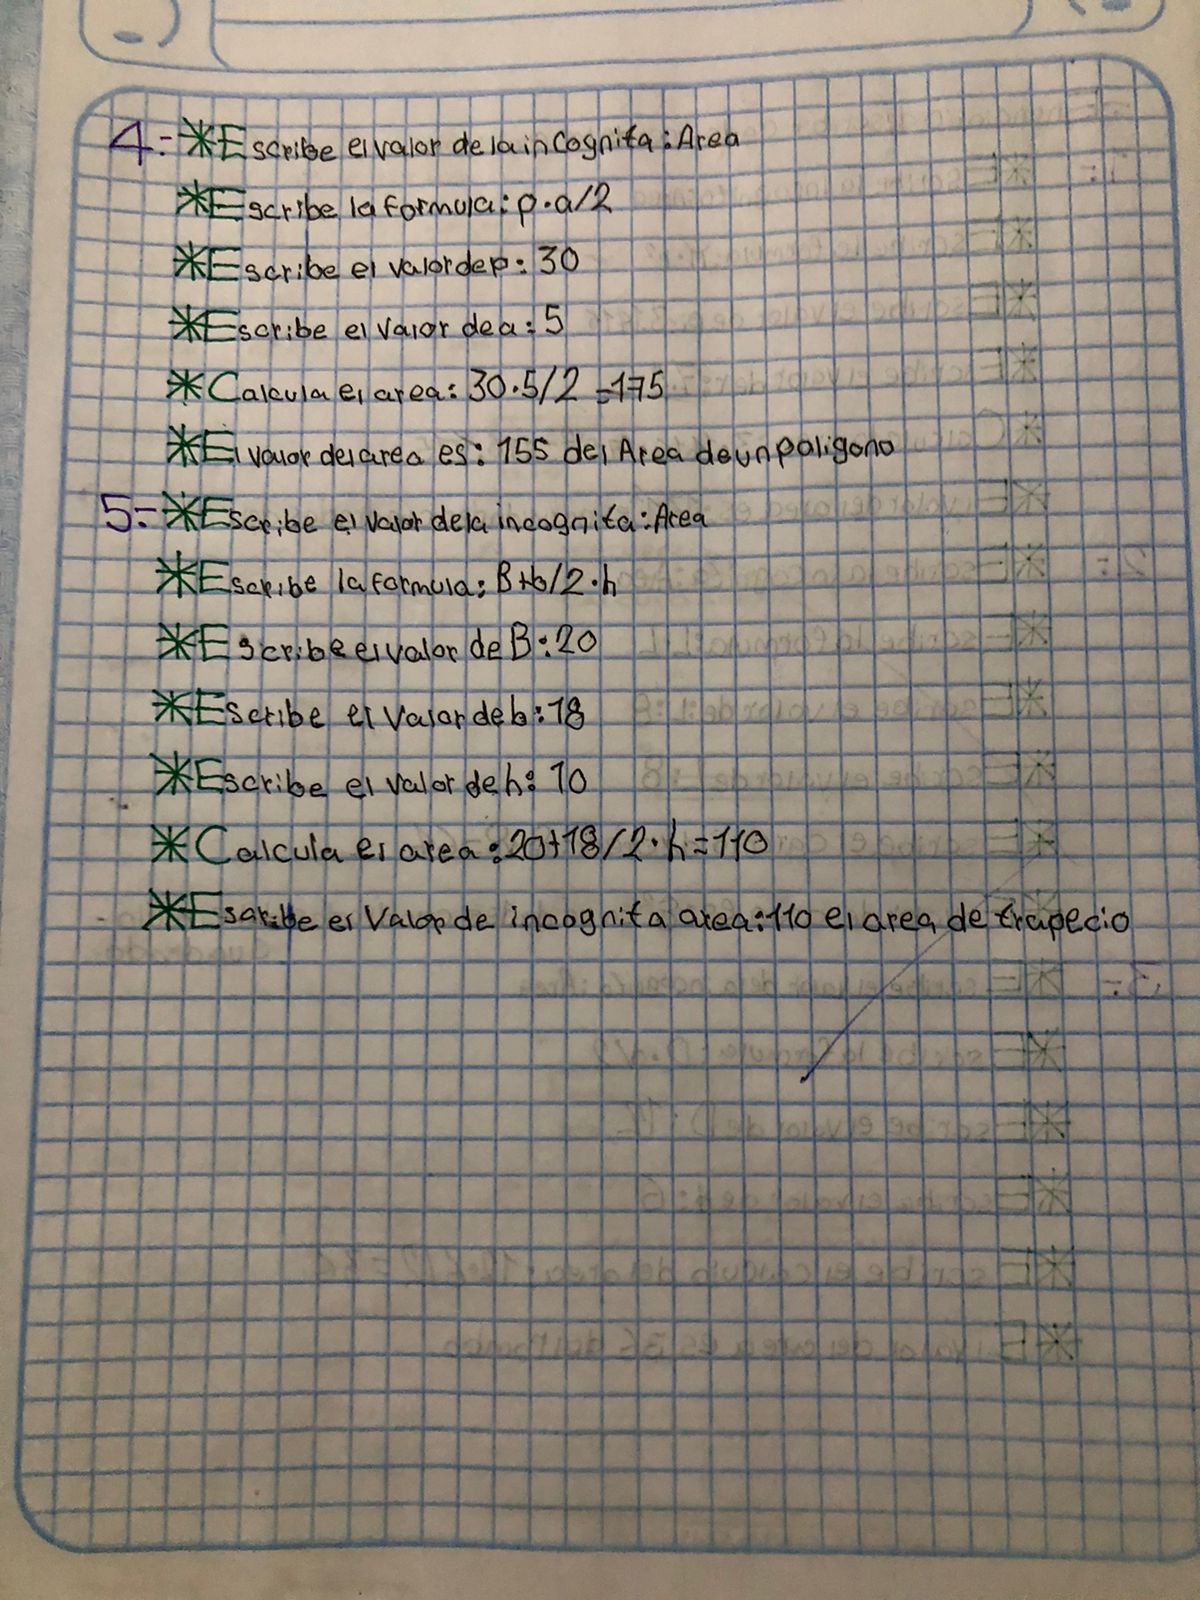 4:- *Escribe el valor de la incognita: Area
*Escribe la formula: p·a/2
*Escribe el valor de p: 30
*Escribe el valor de a: 5
*Calcula el area: 30·5/2 =175
*El valor del area es: 155 del Area de un poligono
5:- *Escribe el valor de la incognita: Area
*Escribe la formula: B+b/2·h
*Escribe el valor de B: 20
*Escribe el valor de b: 18
*Escribe el valor de h: 10
*Calcula el area: 20+18/2·h=110
*Escribe el Valor de incognita area: 110 el area de trapecio